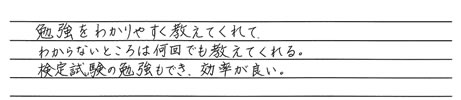 勉強をわかりやすく教えてくれて、
わからないところは何回でも教えてくれる。
検定試験の勉強もでき、効率が良い。